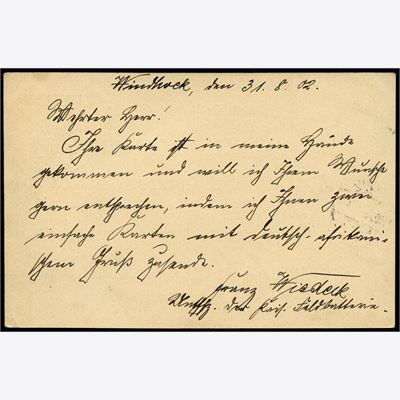 Windhoek, den 31. 8. 02.
Wehrter Herr!
Ihre Karte ist in meine Hände
gekommen und will ich Ihrem Wunsche
gern entsprechen, indem ich Ihnen zwei
einfache Karten mit deutsch-afrikani-
schem Gruß zusende.
Franz
der Kais. Feldbatterie.